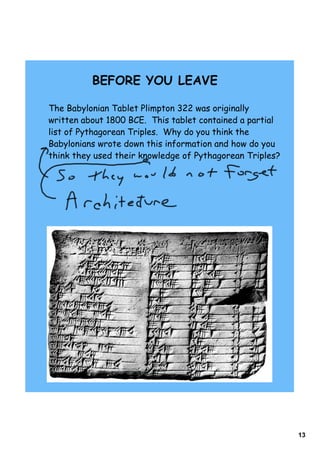 BEFORE YOU LEAVE
The Babylonian Tablet Plimpton 322 was originally
written about 1800 BCE.  This tablet contained a partial
list of Pythagorean Triples.  Why do you think the
Babylonians wrote down this information and how do you
think they used their knowledge of Pythagorean Triples?
So they would not Forget
Architecture
13